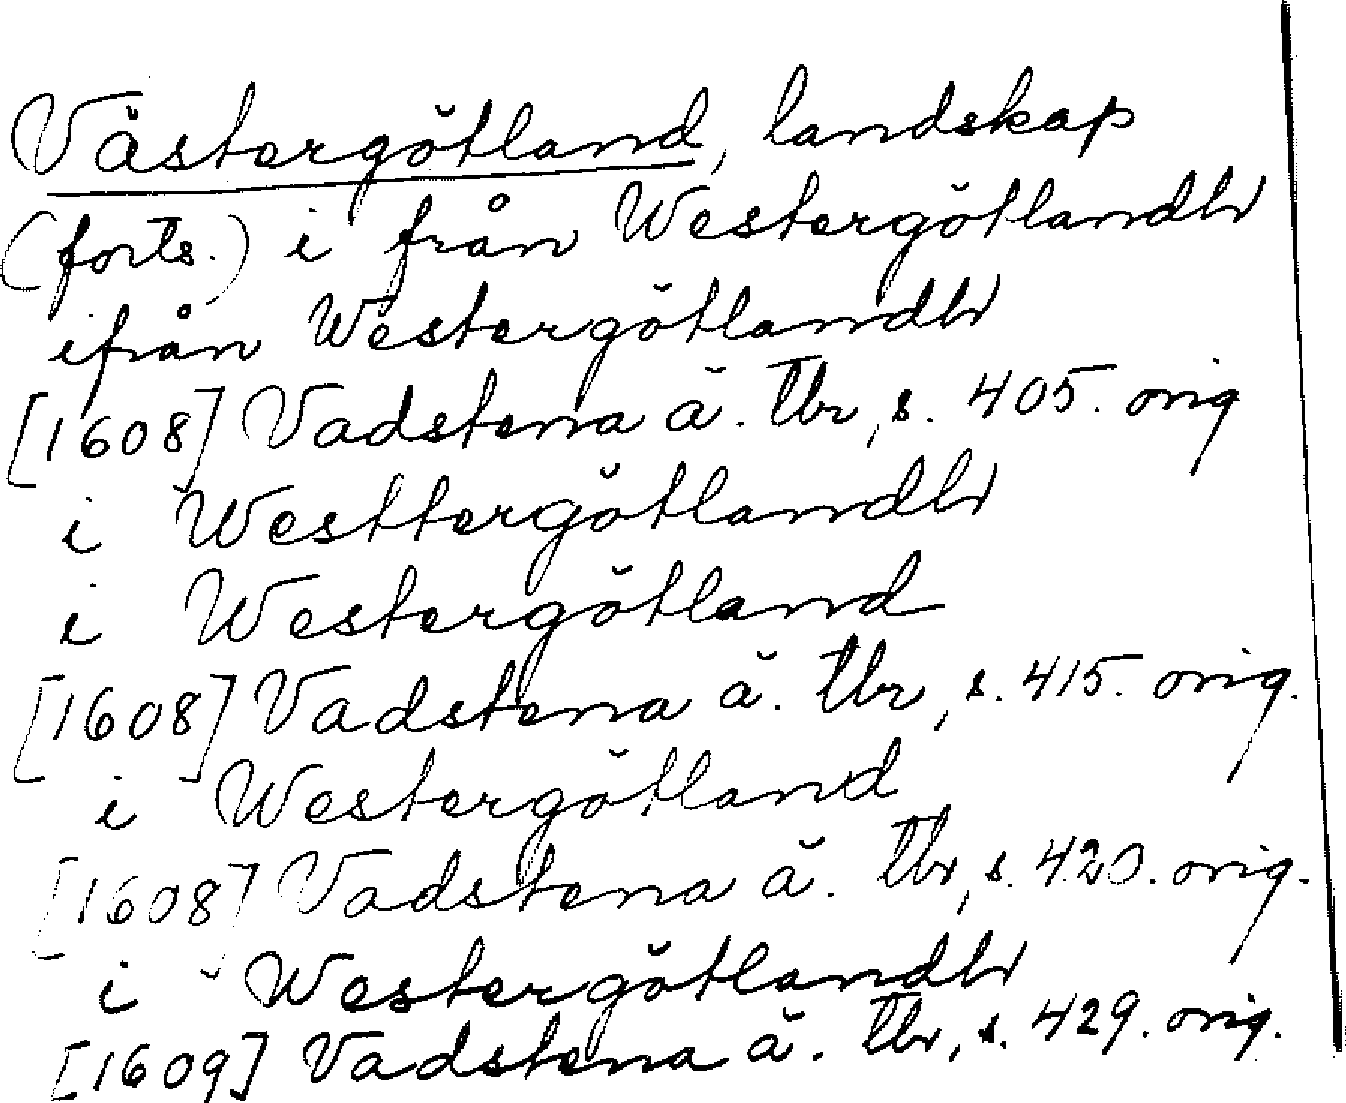 Västergötland, landskap
(forts.) i från Westergötlandh
ifrån Westergötlandh
[1608] Vadstena ä. tbr, s. 405. orig
i Westtergötlandh
i Westergötland
[1608] Vadstena ä. tbr, s. 415. orig.
i Westergötland
[1608] Vadstena ä. tbr, s. 420. orig.
i Westergötlandh
[1609] Vadstena ä. tbr, s. 429. orig.